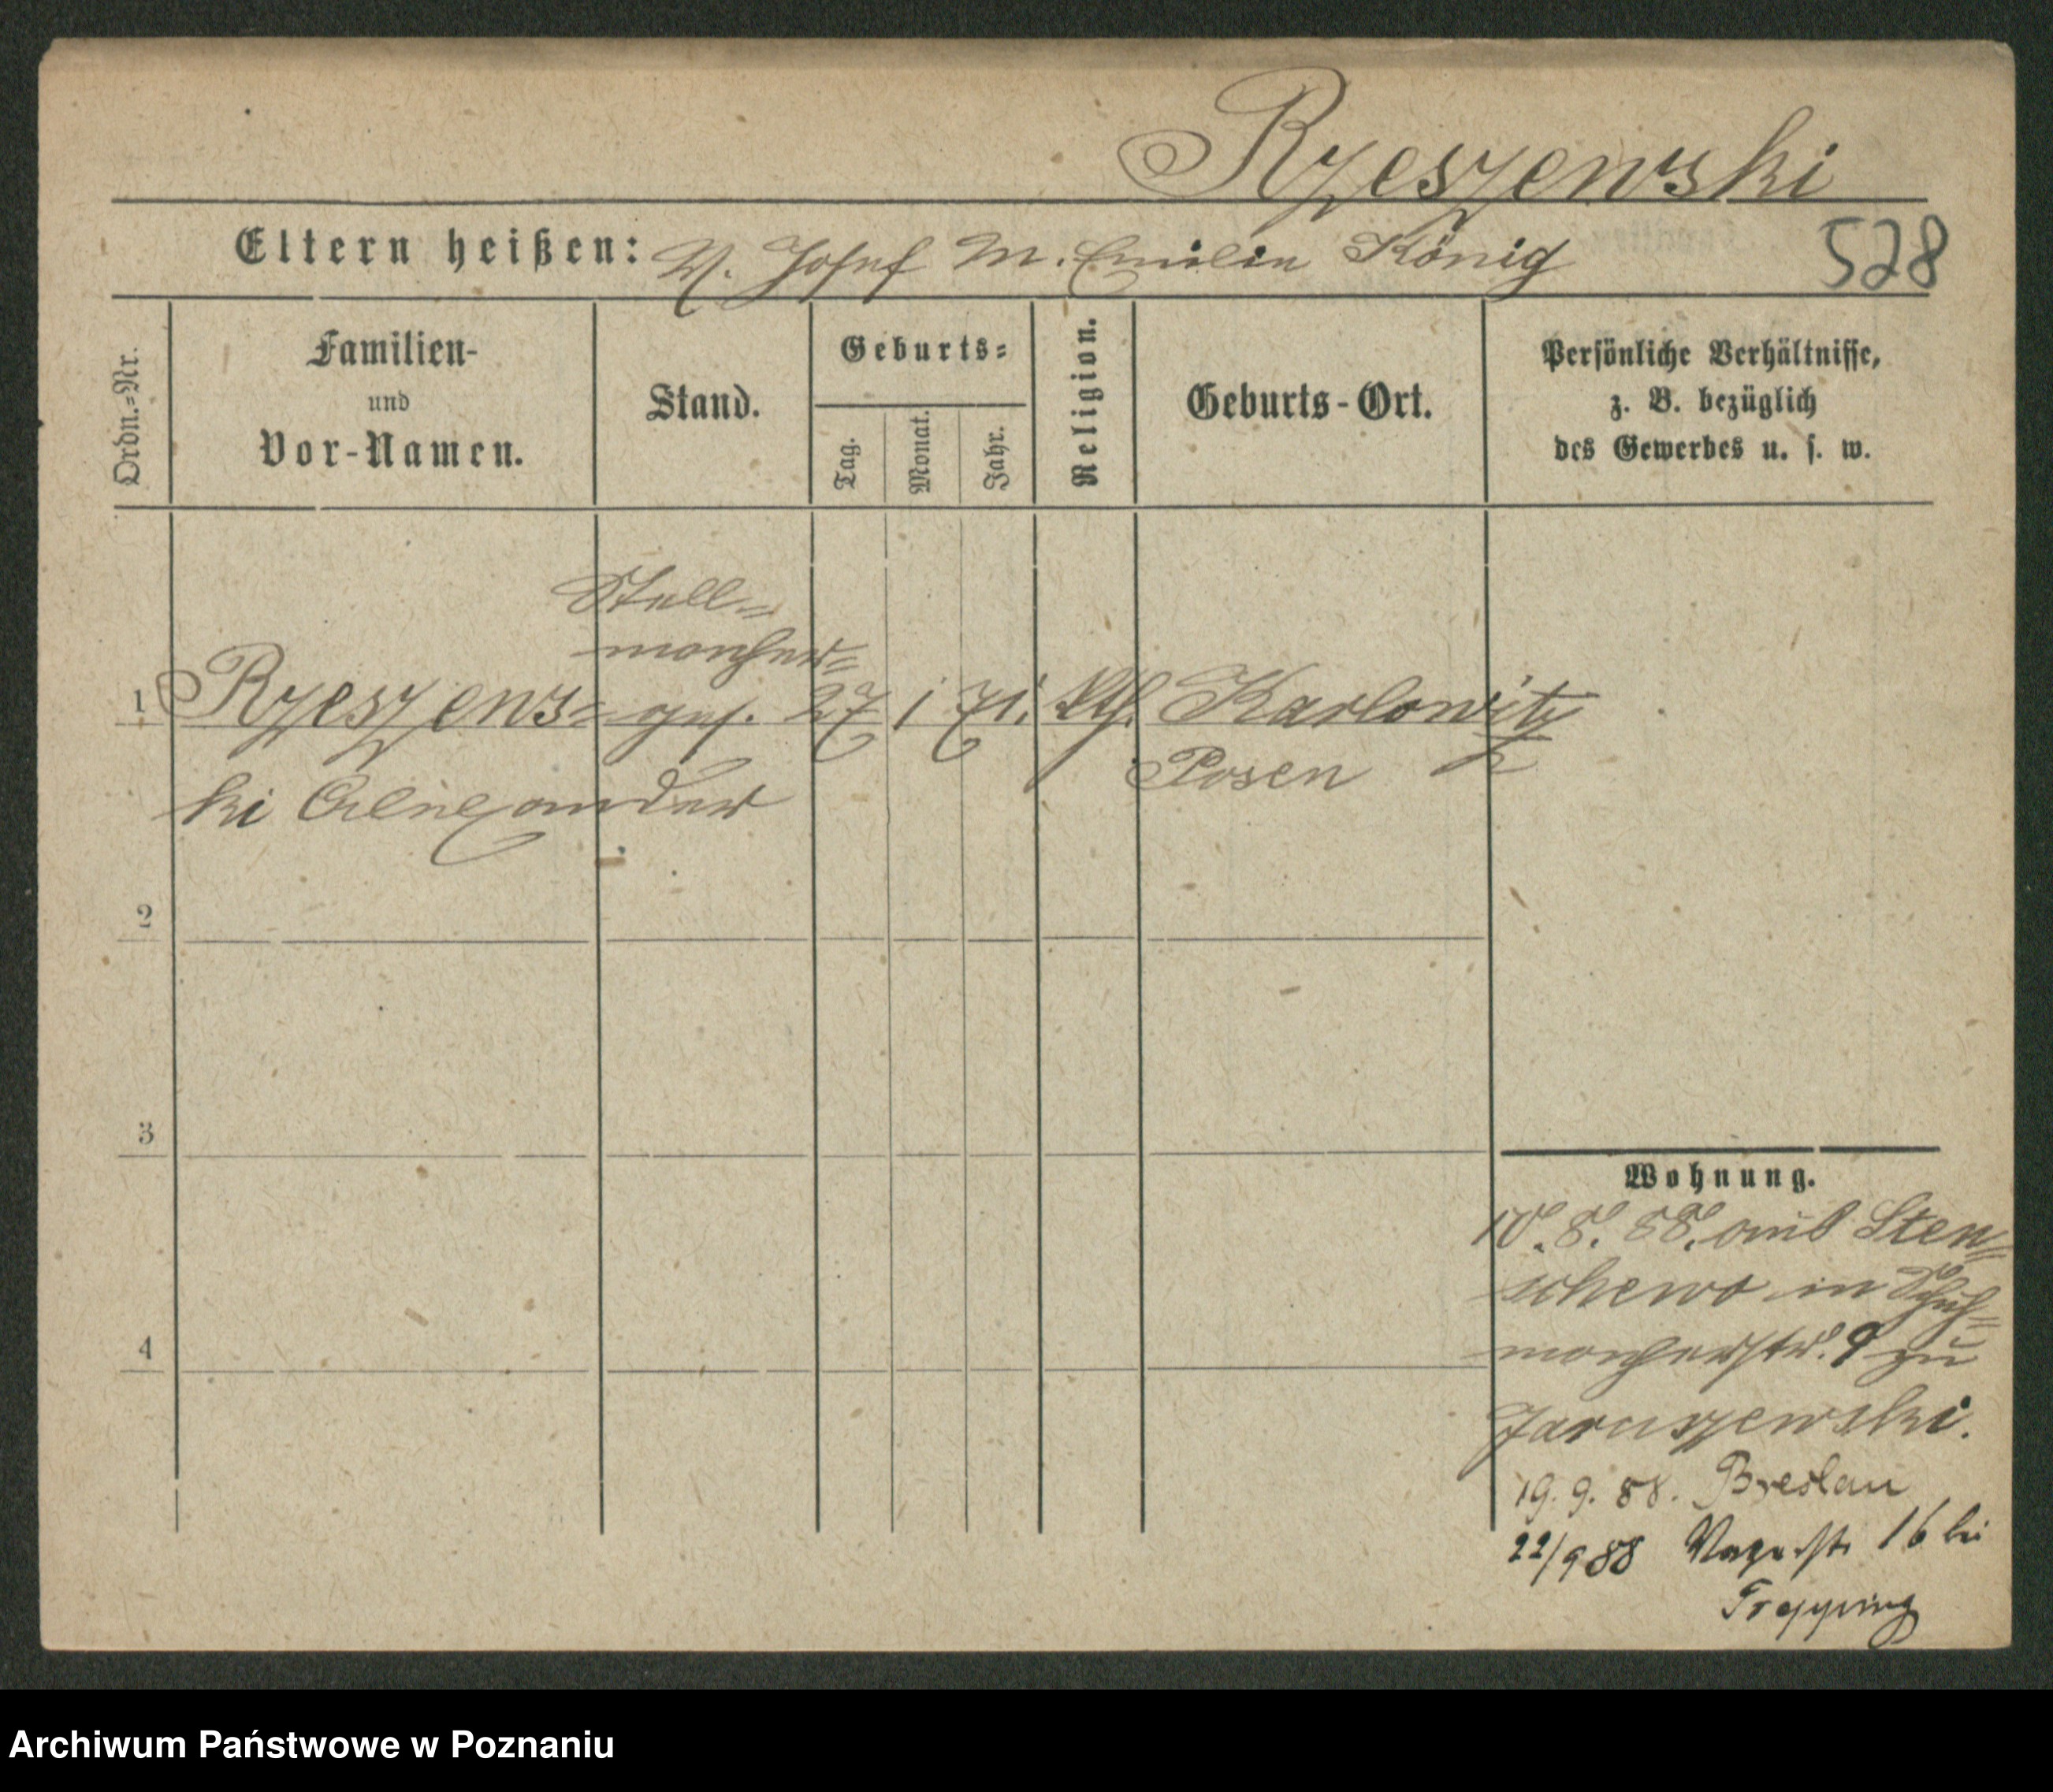 Rzeszewski
Eltern heißen: V. Josef M. Emilie König
528
Ordn.=Nr.
Familien-
und
Vor-Namen.
Stand.
Geburts=
Tag.
Monat.
Jahr.
Religion.
Geburts-Ort.
Persönliche Verhältnisse,
z. B. bezüglich
des Gewerbes u. s. w.
Stell=
macher=
1 Rzeszews= ges. 27 1 71. kth. Karlowitz
ki Alexander Posen
2
3
4
Wohnung.
10. 8. 88. aus Sten=
schewo in Schuh=
macherstr. 9 zu
Jaruszewski.
19. 9. 88. Breslau
22/9 88 16 bei